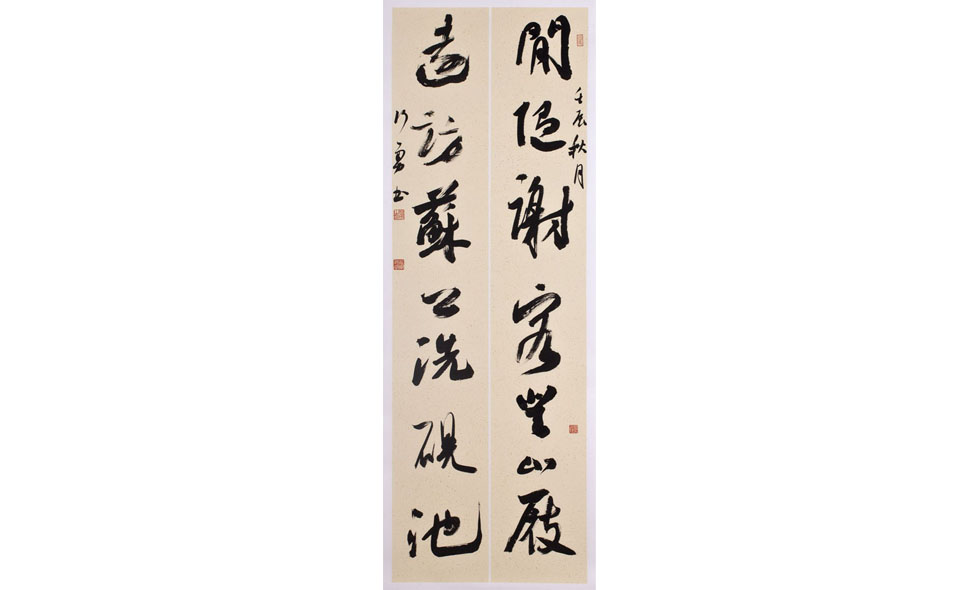 壬辰秋月
閒随謝客登山屐
遠訪蘇公洗硯池
勇书